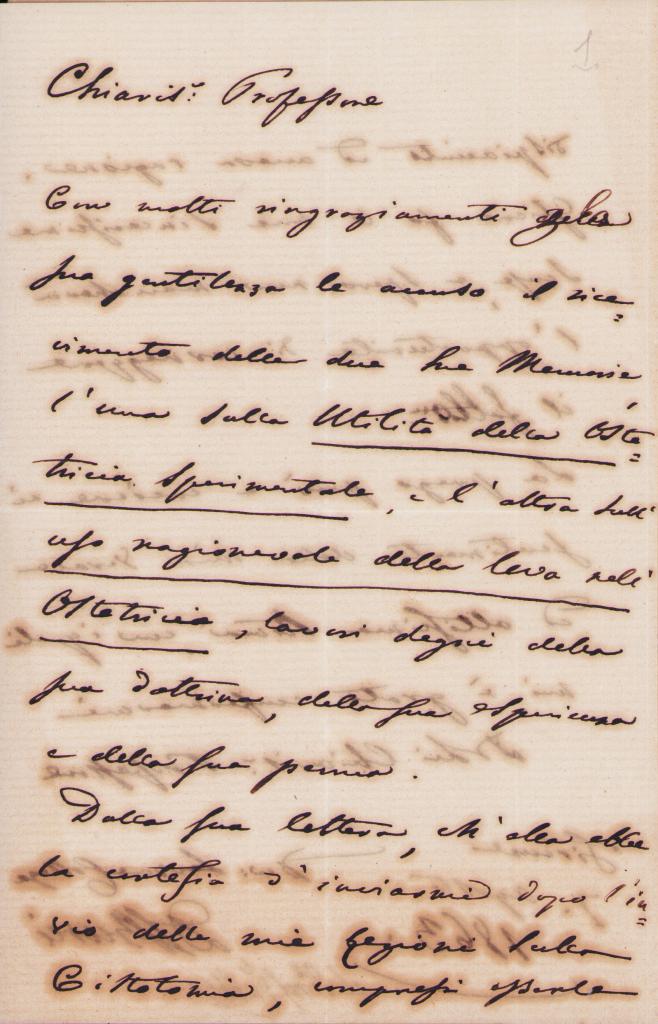 1.
Chiaris.º Professore
Con molti ringraziamenti della
sua gentilezza le accuso il rice=
vimento delle due sue Memorie,
l'una sulla Utilità della Oste=
tricia Sperimentale, e l'altra sull'
uso ragionevole della leva nell'
Ostetricia, lavori degni della
sua dottrina, della sua esperienza
e della sua penna.
Dalla sua lettera, ch'ella ebbe
la cortesia d'inviarmi dopo l'in=
vio delle mie Lezioni sulla
Cistotomia, compresi